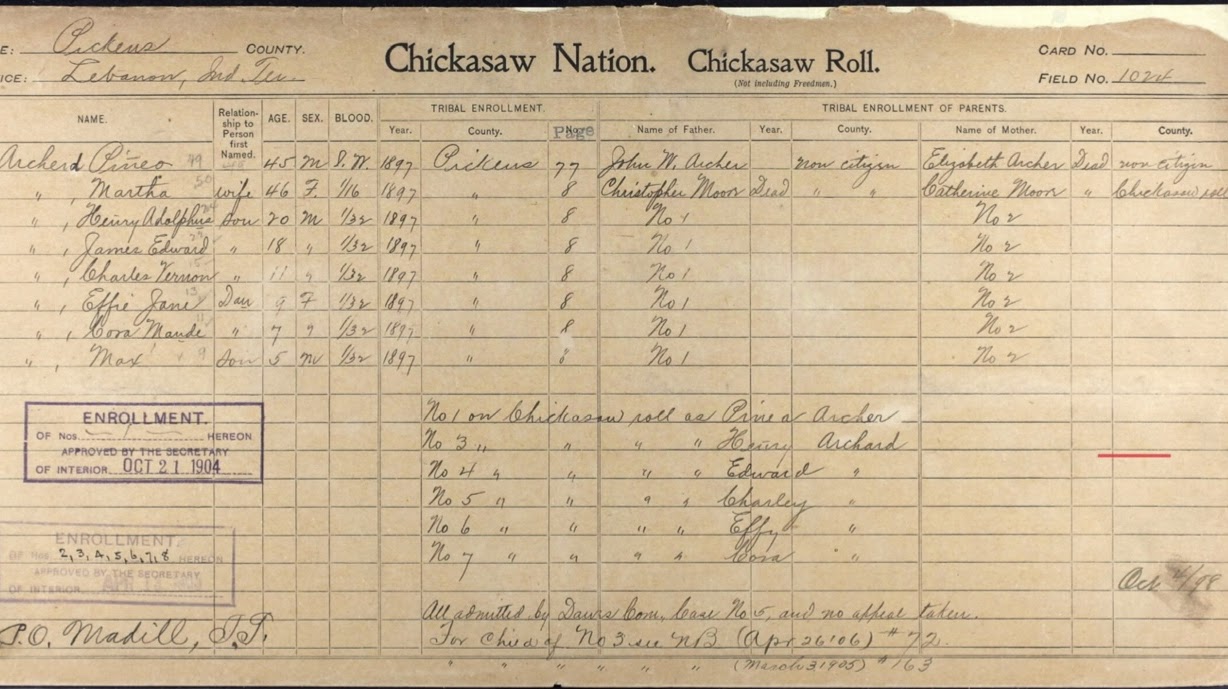 E: Pickens COUNTY.
ICE: Lebanon, Ind. Ter.
Chickasaw Nation. Chickasaw Roll.
(Not including Freedmen.)
CARD No.
FIELD No. 1024
NAME. Relation-ship to Person first Named. AGE. SEX. BLOOD. TRIBAL ENROLLMENT. TRIBAL ENROLLMENT OF PARENTS.
Year. County. No. Page Name of Father. Year. County. Name of Mother. Year. County.
Archerd Pineo 49 45 M I.W. 1897 Pickens 77 John W. Archer non citizen Elizabeth Archer Dead non citizen
" , Martha 50 wife 46 F. 1/16 1897 " 8 Christopher Moon Dead " " Catherine Moon " Chickasaw roll
" , Henry Adolphus 24 Son 20 M 1/32 1897 " 8 No 1 No 2
" , James Edward 18 " 1/32 1897 " 8 No 1 No 2
" , Charles Vernon " 11 " 1/32 1897 " 8 No 1 No 2
" , Effie Jane 13 Dau 9 F 1/32 1897 " 8 No 1 No 2
" , Cora Maude 11 " 7 " 1/32 1897 " 8 No 1 No 2
" , Max 9 Son 5 M 1/32 1897 " 8 No 1 No 2
No 1 on Chickasaw roll as Pinea Archer
No 3 " " " " Henry Archard
No 4 " " " " Edward "
No 5 " " " " Charley "
No 6 " " " " Effy "
No 7 " " " " Cora "
ENROLLMENT.
OF Nos. HEREON
APPROVED BY THE SECRETARY
OF INTERIOR. OCT 21 1904
ENROLLMENT.
OF Nos. 2,3,4,5,6,7,8 HEREON
APPROVED BY THE SECRETARY
OF INTERIOR.
Oct /98
All admitted by Dawes Com, Case No 5, and no appeal taken.
P.O. Madill, I.T.
For child of No 3 see NB (Apr 26 '06) #72.
" " " " " " (March 3 1905) #163